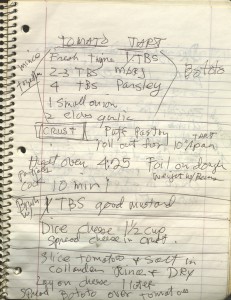 TOMATO TART
mince together
Fresh thyme 1 TBS
2-3 TBS
4 TBS Parsley
1 small onion
2 cloves garlic
CRUST Puff pastry
roll out for 10" pan
Heat oven 425 Foil on dough
10 min
1 TBS good mustard
Dice cheese 1 1/2 cup
spread cheese in crust.
Slice tomatoes & salt in
collander Rinse & DRY
Lay on cheese 1 layer
Spread over tomatoes